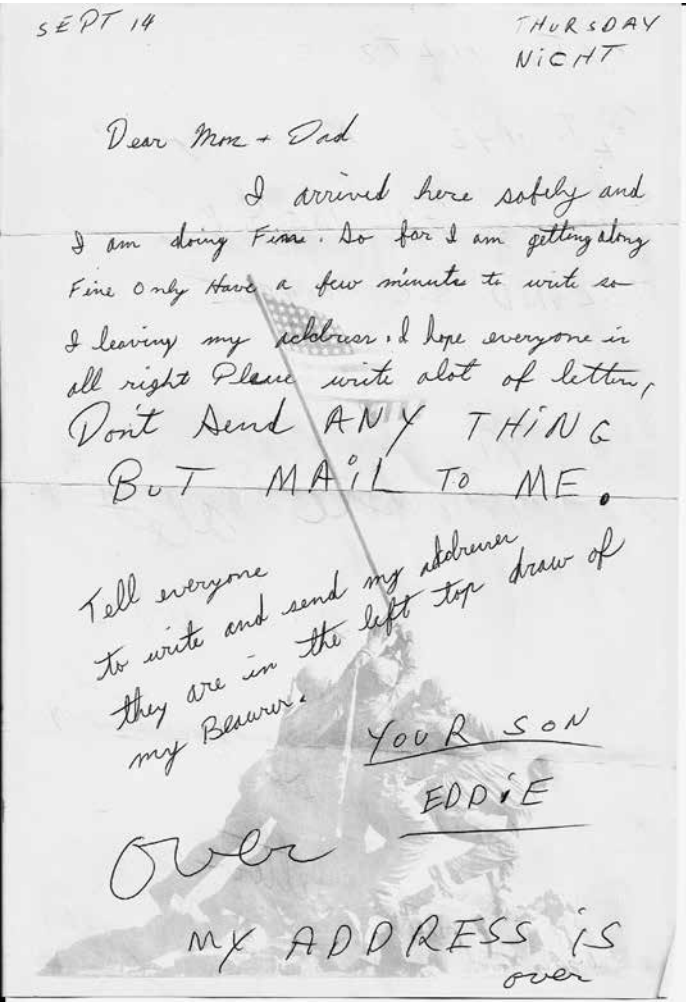 SEPT 14
THURSDAY
NIGHT
Dear Mom + Dad
I arrived here safely and
I am doing Fine. So far I am getting along
Fine Only Have a few minutes to write so
I leaving my address. I hope everyone is
all right Please write alot of letters,
Don't Send ANY THING
BUT MAIL TO ME.
Tell everyone
to write and send my addresses
they are in the left top draw of
my Beaurer.
YOUR SON
EDDIE
Over
MY ADDRESS IS
over